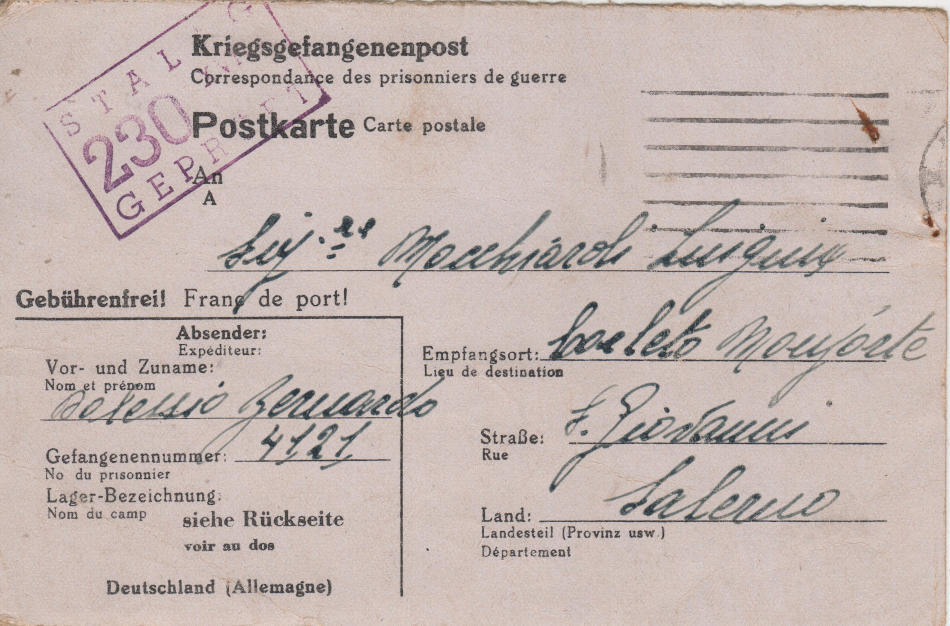 STALAG
230
GEPRÜFT
Kriegsgefangenenpost
Correspondance des prisonniers de guerre
Postkarte Carte postale
An
A
Luigina
Gebührenfrei! Franc de port!
Absender:
Expéditeur:
Vor- und Zuname:
Nom et prénom
Bernardo
Gefangenennummer: 4121
No du prisonnier
Lager-Bezeichnung:
Nom du camp
siehe Rückseite
voir au dos
Deutschland (Allemagne)
Empfangsort: Corleto Monforte
Lieu de destination
Straße: S. Giovanni
Rue
Land: Salerno
Landesteil (Provinz usw.)
Département